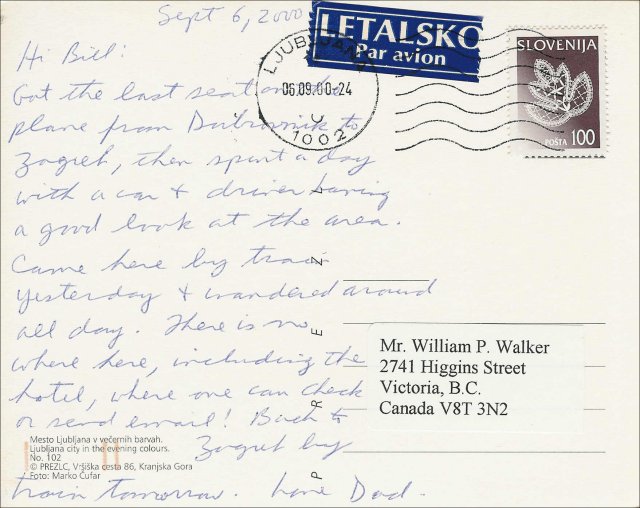 Sept 6, 2000
Hi Bill:
Got the last seat on the
plane from Dubrovnik to
Zagreb, then spent a day
with a car & driver having
a good look at the area.
Came here by train
yesterday & wandered around
all day. There is no
where here, including the
hotel, where one can check
or send email! Back to
Zagreb by
train tomorrow. Love Dad.
Mesto Ljubljana v večernih barvah.
Ljubljana city in the evening colours.
No. 102
© PREZLC, Vršiška cesta 86, Kranjska Gora
Foto: Marko Čufar
P R E Z L C
LETALSKO
Par avion
LJUBLJANA
06.09.00-24
1002
SLOVENIJA
POŠTA 100
Mr. William P. Walker
2741 Higgins Street
Victoria, B.C.
Canada V8T 3N2